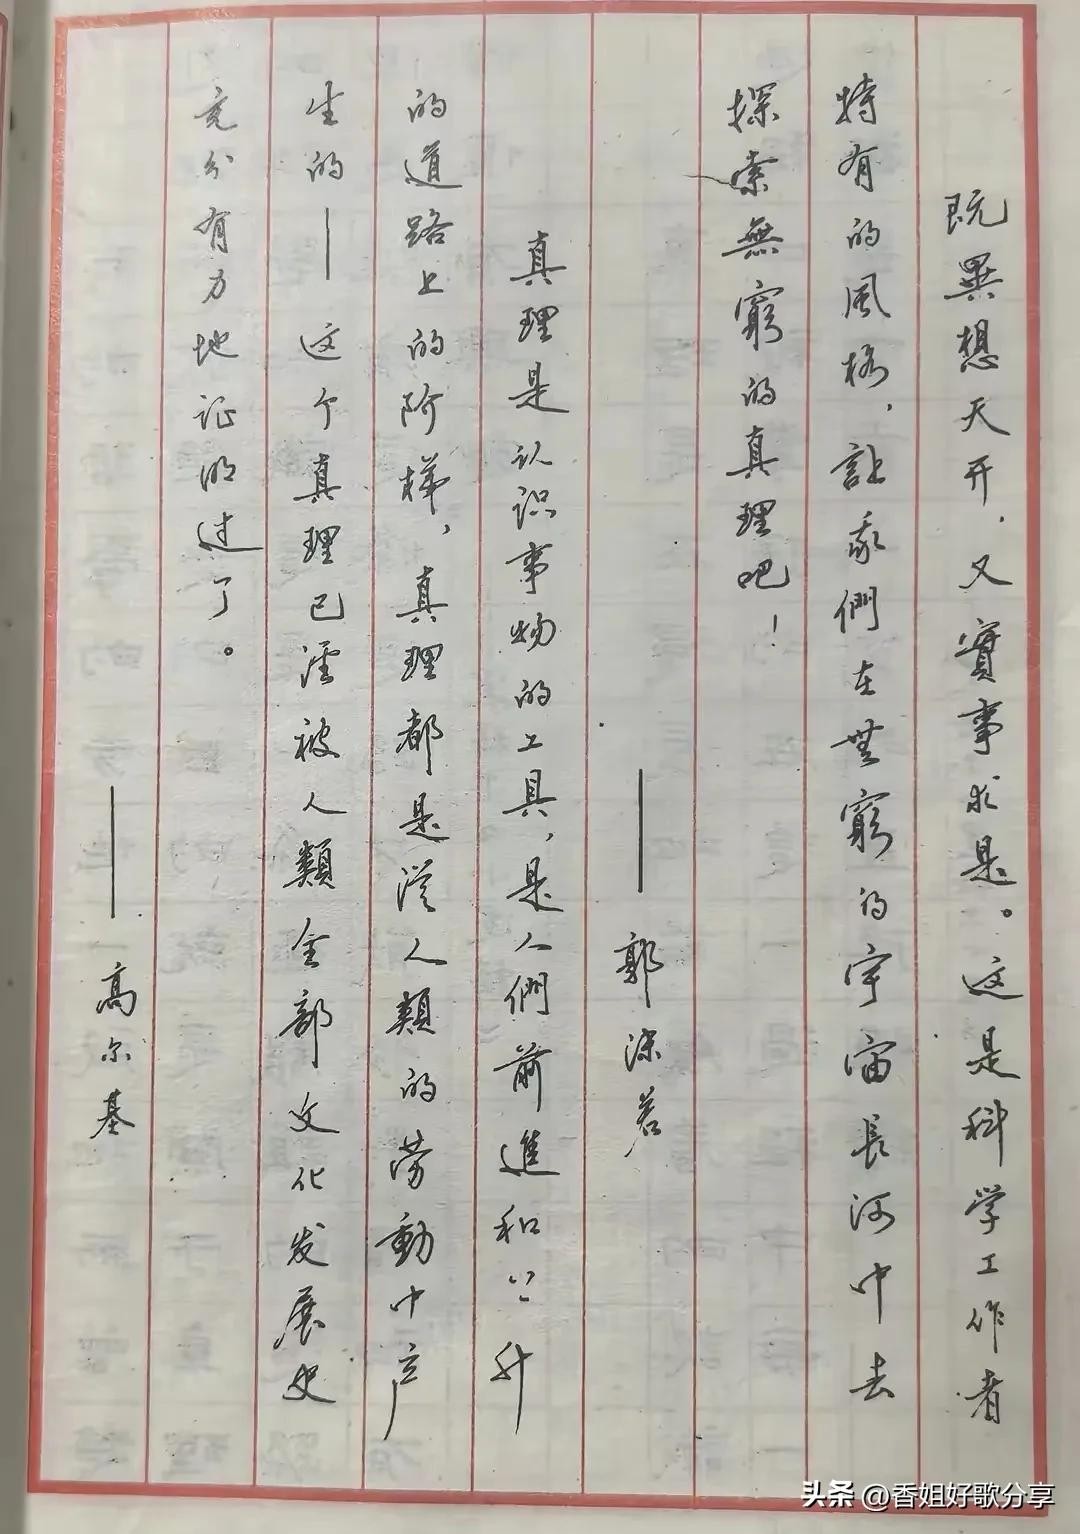 既異想天开，又實事求是。这是科学工作者
特有的風格，讓我們在無窮的宇宙長河中去
探索無窮的真理吧！
——郭沫若
真理是认识事物的工具，是人們前進和上升
的道路上的阶梯，真理都是從人類的劳動中产
生的——这个真理已經被人類全部文化发展史
充分有力地证明过了。
——高尔基
头条 @香姐好歌分享